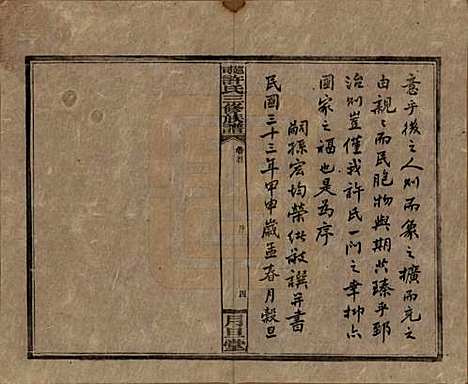 意乎後之人則而象之擴而充之
由親親而民胞物與期共臻乎郅
治則豈僅我許氏一門之幸抑亦
國家之福也是為序
嗣孫宏均榮
敬譔并書
民國三十三年甲申歲孟春月穀旦
許氏三修族譜
卷首
序
四
月旦堂